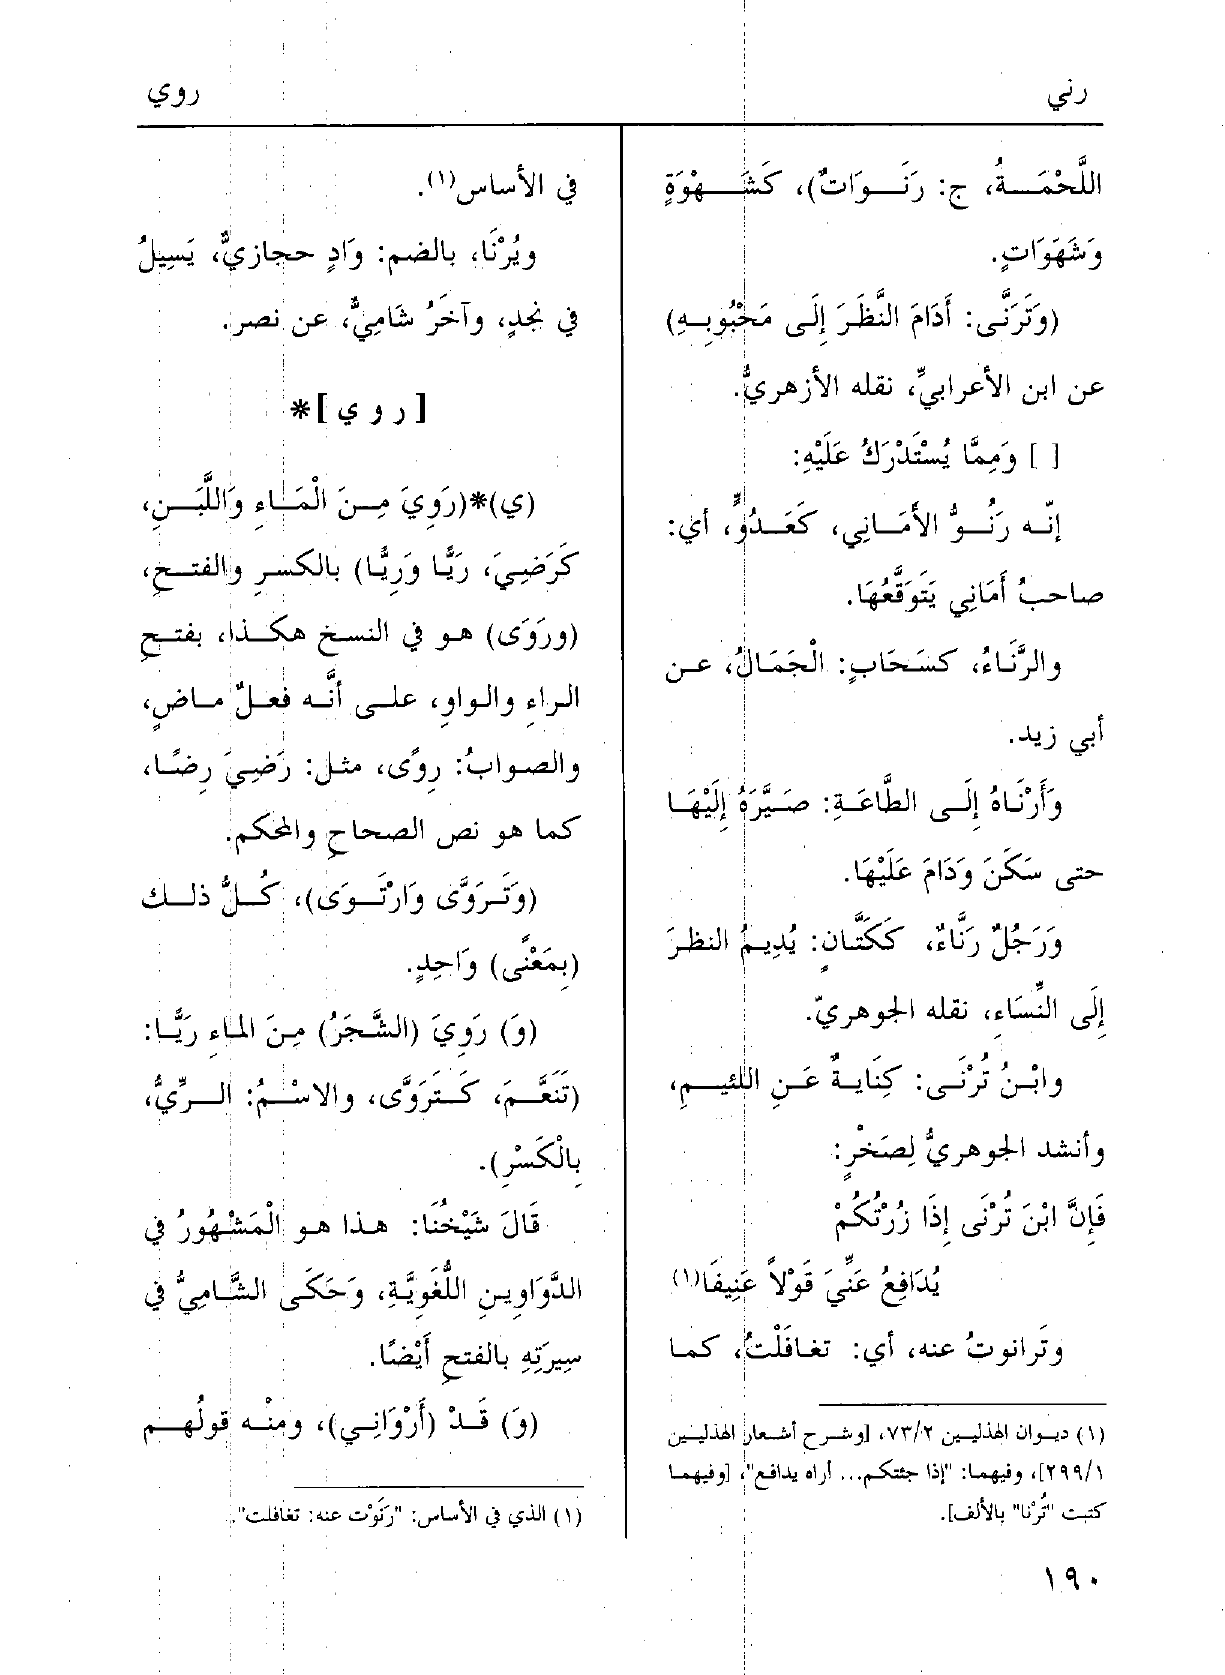 رني
روي
اللَّحْمَةُ، ج: رَنَوَاتٌ)، كَشَهْوَةٍ
وَشَهَوَاتٍ.
(وَتَرَنَّى: أَدَامَ النَّظَرَ إِلَى مَحْبُوبِهِ)
عن ابن الأعرابيِّ، نقله الأزهريُّ.
[ ] وَمِمَّا يُسْتَدْرَكُ عَلَيْهِ:
إنّه رَنُوُّ الأَمَانِي، كَعَدُوٍّ، أي:
صاحبُ أَمَانِي يَتَوَقَّعُهَا.
والرَّنَاءُ، كسَحَابٍ: الْجَمَالُ، عن
أبي زيد.
وَأَرْنَاهُ إِلَى الطَّاعَةِ: صَيَّرَهُ إِلَيْهَا
حتى سَكَنَ وَدَامَ عَلَيْهَا.
وَرَجُلٌ رَنَّاءٌ، كَكَتَّانٍ: يُدِيمُ النظرَ
إِلَى النِّسَاءِ، نقله الجوهريّ.
وابْنُ تُرْنَى: كِنَايةٌ عَنِ اللئيمِ،
وأنشد الجوهريُّ لِصَخْرٍ:
فَإِنَّ ابْنَ تُرْنَى إِذَا زُرْتُكُمْ
يُدَافِعُ عَنِّيَ قَوْلاً عَنِيفَا(١)
وتَرانوتُ عنه، أي: تغافَلْتُ، كما
(١) ديوان الهذليين ٧٣/٢، [وشرح أشعار الهذليين
٢٩٩/١]، وفيهما: "إذا جئتكم... أراه يدافع"، [وفيهما
كتبت "تُرْنا" بالألف].
في الأساس(١).
ويُرْنَا، بالضم: وَادٍ حجازيٌّ، يَسِيلُ
في نجدٍ، وآخَرُ شَامِيٌّ، عن نصر.
[ ر و ي ]*
(ي)*(رَوِيَ مِنَ الْمَاءِ وَاللَّبَنِ،
كَرَضِيَ، رَيًّا وَرِيًّا) بالكسرِ والفتحِ،
(ورَوَى) هو في النسخ هكذا، بفتحِ
الراءِ والواوِ، على أنَّه فعلٌ ماضٍ،
والصوابُ: رِوًى، مثل: رَضِيَ رِضًا،
كما هو نص الصحاح والمحكم.
(وَتَرَوَّى وَارْتَوَى)، كُلُّ ذلك
(بِمَعْنًى) وَاحِدٍ.
(وَ) رَوِيَ (الشَّجَرُ) مِنَ الماءِ رَيًّا:
(تَنَعَّمَ، كَتَرَوَّى، والاسْمُ: الرِّيُّ،
بِالْكَسْرِ).
قَالَ شَيْخُنَا: هذا هو الْمَشْهُورُ في
الدَّوَاوِينِ اللُّغَوِيَّةِ، وَحَكَى الشَّامِيُّ في
سِيرَتِهِ بالفتحِ أَيْضًا.
(وَ) قَدْ (أَرْوَانِي)، ومنْه قولُهم
(١) الذي في الأساس: "رَنَوْت عنه: تغافلت".
١٩٠